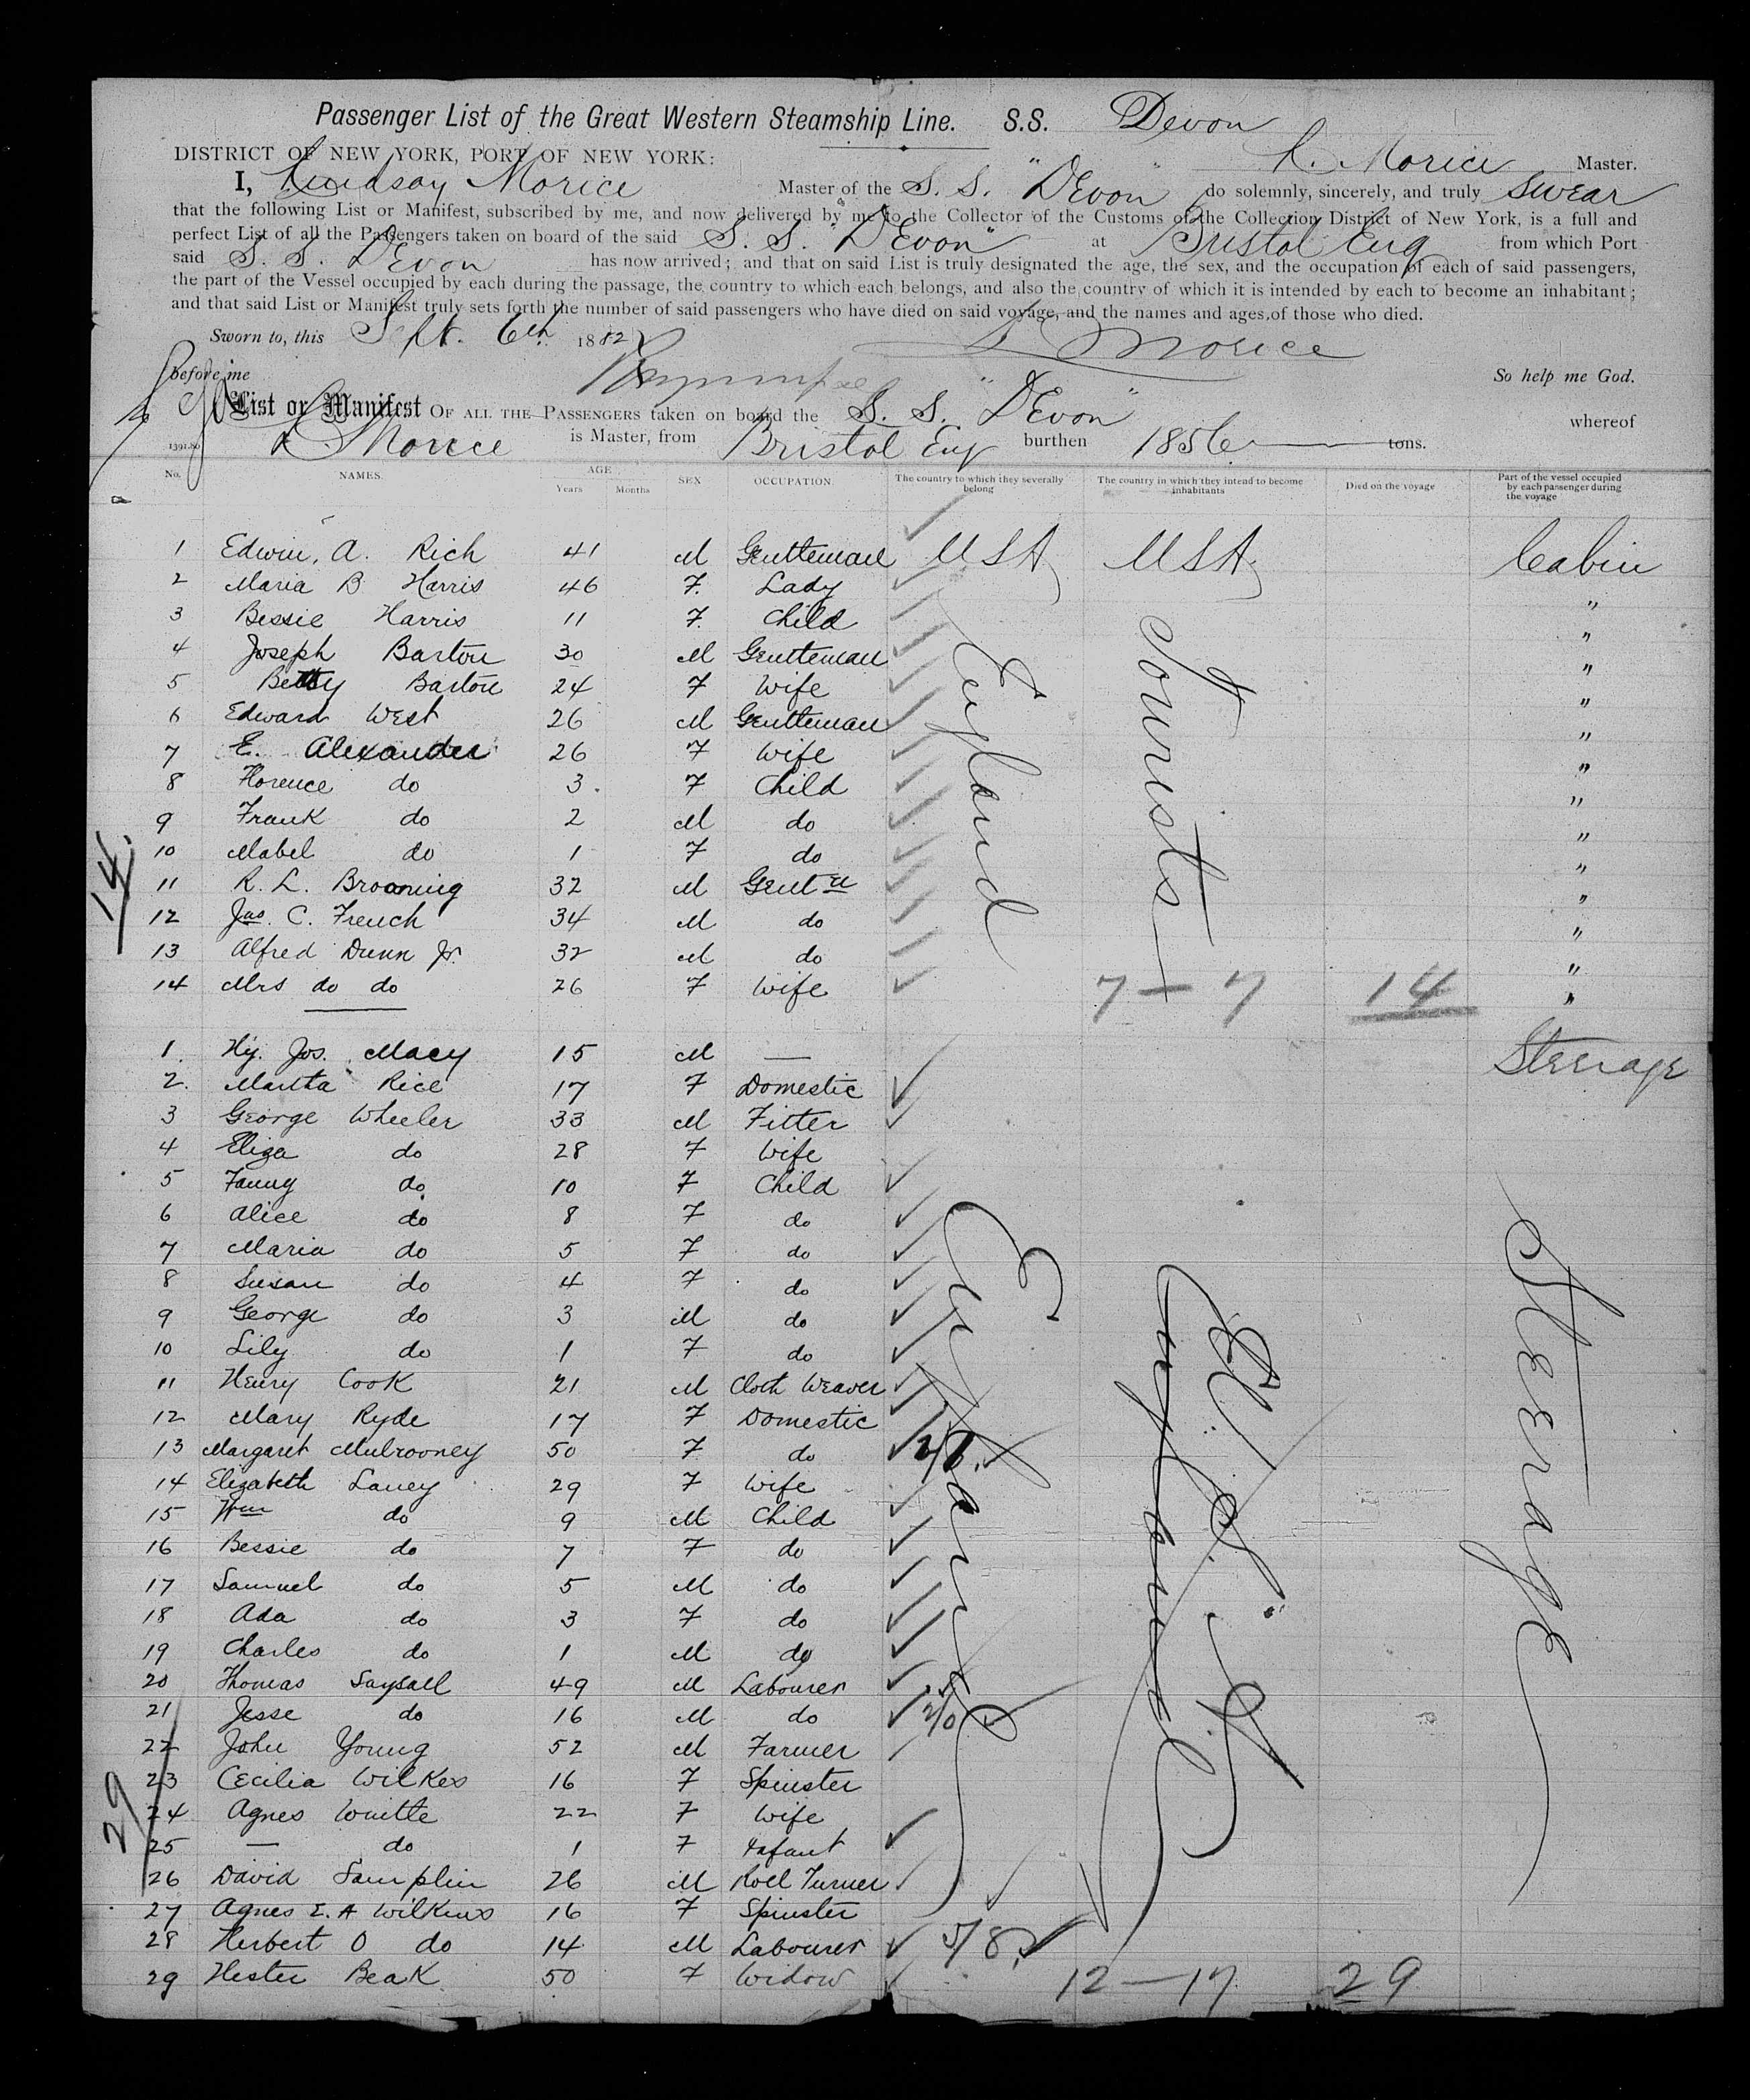 Passenger List of the Great Western Steamship Line. S.S. Devon
DISTRICT OF NEW YORK, PORT OF NEW YORK: L. Morice Master.
I, Lindsay Morice Master of the S. S. "Devon" do solemnly, sincerely, and truly swear
that the following List or Manifest, subscribed by me, and now delivered by me to the Collector of the Customs of the Collection District of New York, is a full and
perfect List of all the Passengers taken on board of the said S. S. "Devon" at Bristol Eng from which Port
said S. S. Devon has now arrived; and that on said List is truly designated the age, the sex, and the occupation of each of said passengers,
the part of the Vessel occupied by each during the passage, the country to which each belongs, and also the country of which it is intended by each to become an inhabitant;
and that said List or Manifest truly sets forth the number of said passengers who have died on said voyage, and the names and ages, of those who died.
Sworn to, this Sept. 6th 1882 L Morice
before me So help me God.
List or Manifest OF ALL THE PASSENGERS taken on board the S. S. "Devon" whereof
L Morice is Master, from Bristol Eng burthen 1856 tons.
No. NAMES. AGE Years Months SEX OCCUPATION. The country to which they severally belong The country in which they intend to become inhabitants Died on the voyage Part of the vessel occupied by each passenger during the voyage
1 Edwin, A. Rich 41 M Gentleman USA USA Cabin
2 Maria B Harris 46 F. Lady "
3 Bessie Harris 11 F. Child "
4 Joseph Barton 30 M Gentleman "
5 Betsy Barton 24 F Wife "
6 Edward West 26 M Gentleman "
7 E. Alexander 26 F Wife "
8 Florence do 3. F Child "
9 Frank do 2 M do "
10 Mabel do 1 F do "
11 R. L. Browning 32 M Gentn "
12 Jas. C. French 34 M do "
13 Alfred Dunn Jr. 32 M do "
14 Mrs do do 26 F Wife "
England
Tourists
14
7 - 7 14
1. Hy. Jos. Macy 15 M — Steerage
2. Martha Rice 17 F Domestic
3 George Wheeler 33 M Fitter
4 Eliza do 28 F Wife
5 Fanny do 10 F Child
6 Alice do 8 F do
7 Maria do 5 F do
8 Susan do 4 F do
9 George do 3 M do
10 Lily do 1 F do
11 Henry Cook 21 M Cloth Weaver
12 Mary Ryde 17 F Domestic
13 Margaret Mulrooney 50 F do
14 Elizabeth Laney 29 F Wife
15 Wm do 9 M Child
16 Bessie do 7 F do
17 Samuel do 5 M do
18 Ada do 3 F do
19 Charles do 1 M do
20 Thomas Saysell 49 M Labourer
21 Jesse do 16 M do
22 John Young 52 M Farmer
23 Cecilia Wilkes 16 F Spinster
24 Agnes 22 F Wife
25 — do 1 F Infant
26 David Samplin 26 M Roll Turner
27 Agnes E. A Wilkins 16 F Spinster
28 Herbert O do 14 M Labourer
29 Hester Beak 50 F Widow
England
England
U. S. A
Steerage
29
12 - 17 29